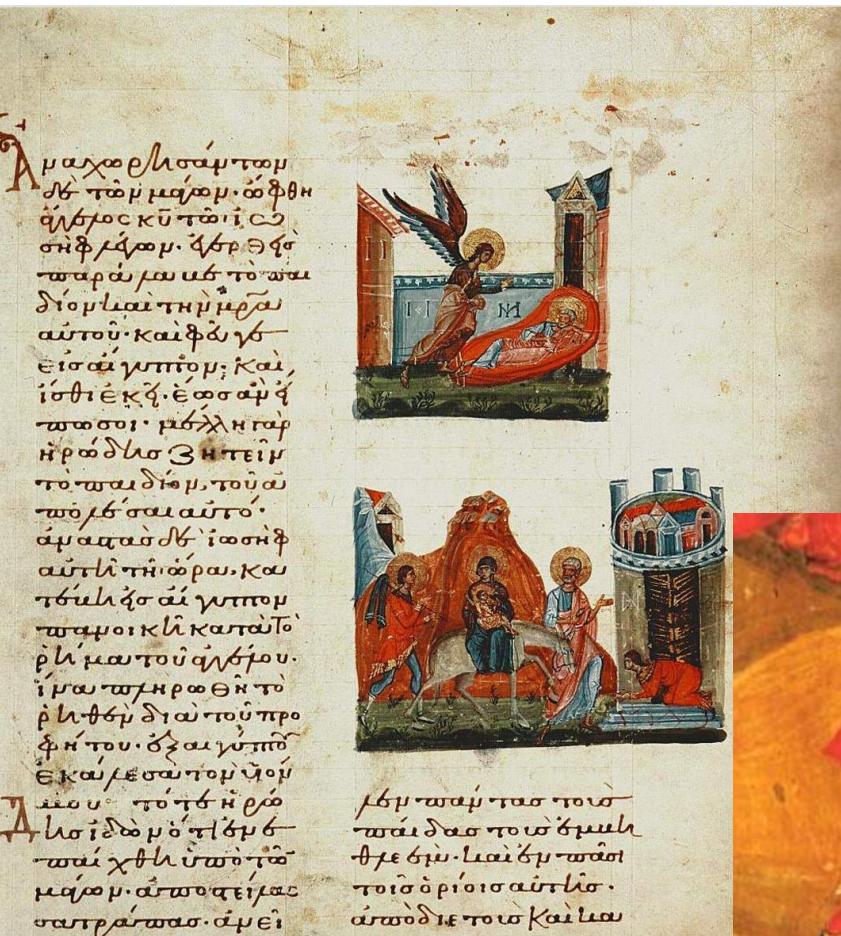 Ἀναχωρησάντων
δὲ τῶν μάγων· ὤφθη
ἄγγελος κ̅υ̅ τῶ ἰω
σὴφ λέγων· ἐγερθεὶς
παράλαβε τὸ παι
δίον καὶ τὴν μ̅ρ̅α̅
αὐτοῦ· καὶ φεῦγε
εἰς αἴγυπτον· καὶ
ἴσθι ἐκεῖ· ἕως ἂν εἴ
πω σοι· μέλλει γὰρ
ἡρώδης ζητεῖν
τὸ παιδίον, τοῦ ἀ
πολέσαι αὐτό·
ἀναστὰς δὲ ἰωσὴφ
αὐτῆ τῆ ὥρα, κα
αἴγυπτον
κατὰ τὸ
ῥῆμα τοῦ ἀγγέλου·
ἵνα πληρωθῆ τὸ
ῥηθὲν διὰ τοῦ προ
φήτου· ἐξ αἰγύπτου
ἐκάλεσα τὸν υἱόν
μου· τότε ἡρώ
δης ἰδὼν ὅτι ἐνε
παίχθη ὑπὸ τῶ
μάγων· ἀποστείλας
σατράπας· ἀνεῖ
λεν πάντας τοὺς
παῖδας τοὺς ἐν βη
θλεέμ· καὶ ἐν πᾶσι
τοῖς ὁρίοις αὐτῆς·
ἀπὸ διετοῦς καὶ κα